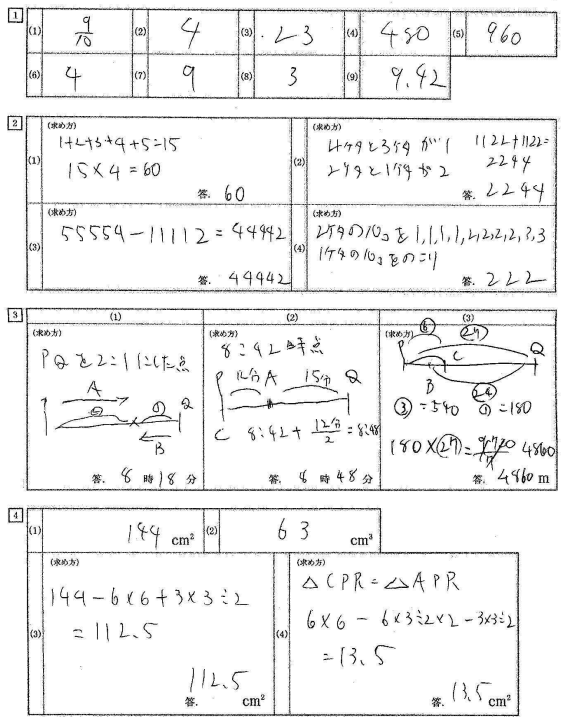 1
(1) 9/10 (2) 4 (3) 23 (4) 480 (5) 960
(6) 4 (7) 9 (8) 3 (9) 9.42
2
(1) (求め方)
1+2+3+4+5=15
15×4=60
答. 60
(2) (求め方)
4ケタと3ケタが1 1122+1122=
2ケタと1ケタが2 2244
答. 2244
(3) (求め方)
55554-11112=44442
答. 44442
(4) (求め方)
2ケタの10コを1,1,1,1,2,2,2,2,3,3
1ケタの10コをのこり
答. 222
3
(1)
(求め方)
PQを2:1にした点
A
P ② ① Q
B
答. 8時18分
(2)
(求め方)
8:42
P 12分 A 15分 Q
C 8:42+12分/2=8:48
答. 8時48分
(3)
(求め方)
㉗
P C Q
B
㉔
③=540 ①=180
180×㉗= 4860
答. 4860m
4
(1) 144 cm²
(2) 63 cm³
(3) (求め方)
144-6×6+3×3÷2
=112.5
答. 112.5 cm²
(4) (求め方)
△CPR=△APR
6×6-6×3÷2×2-3×3÷2
=13.5
答. 13.5 cm²